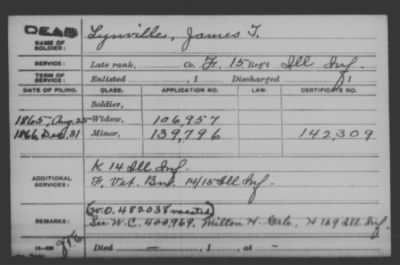 DEAD
NAME OF SOLDIER: Lynville, James T.
SERVICE: Late rank, Co. F, 15 Reg't Ill Inf.
TERM OF SERVICE: Enlisted , 1 Discharged , 1
DATE OF FILING. CLASS. APPLICATION NO. LAW. CERTIFICATE NO.
Soldier,
1865, Aug. 25 Widow, 106,957
1866, Dec. 31 Minor, 139,796 142,309
ADDITIONAL SERVICES: K 14 Ill Inf.
F, Vet. Bn. 14/15 Ill Inf.
(W.O. 482038 vacated)
REMARKS: See W.C. 400,969, Milton H. H 129 Ill Inf.
Died — , 1 , at -